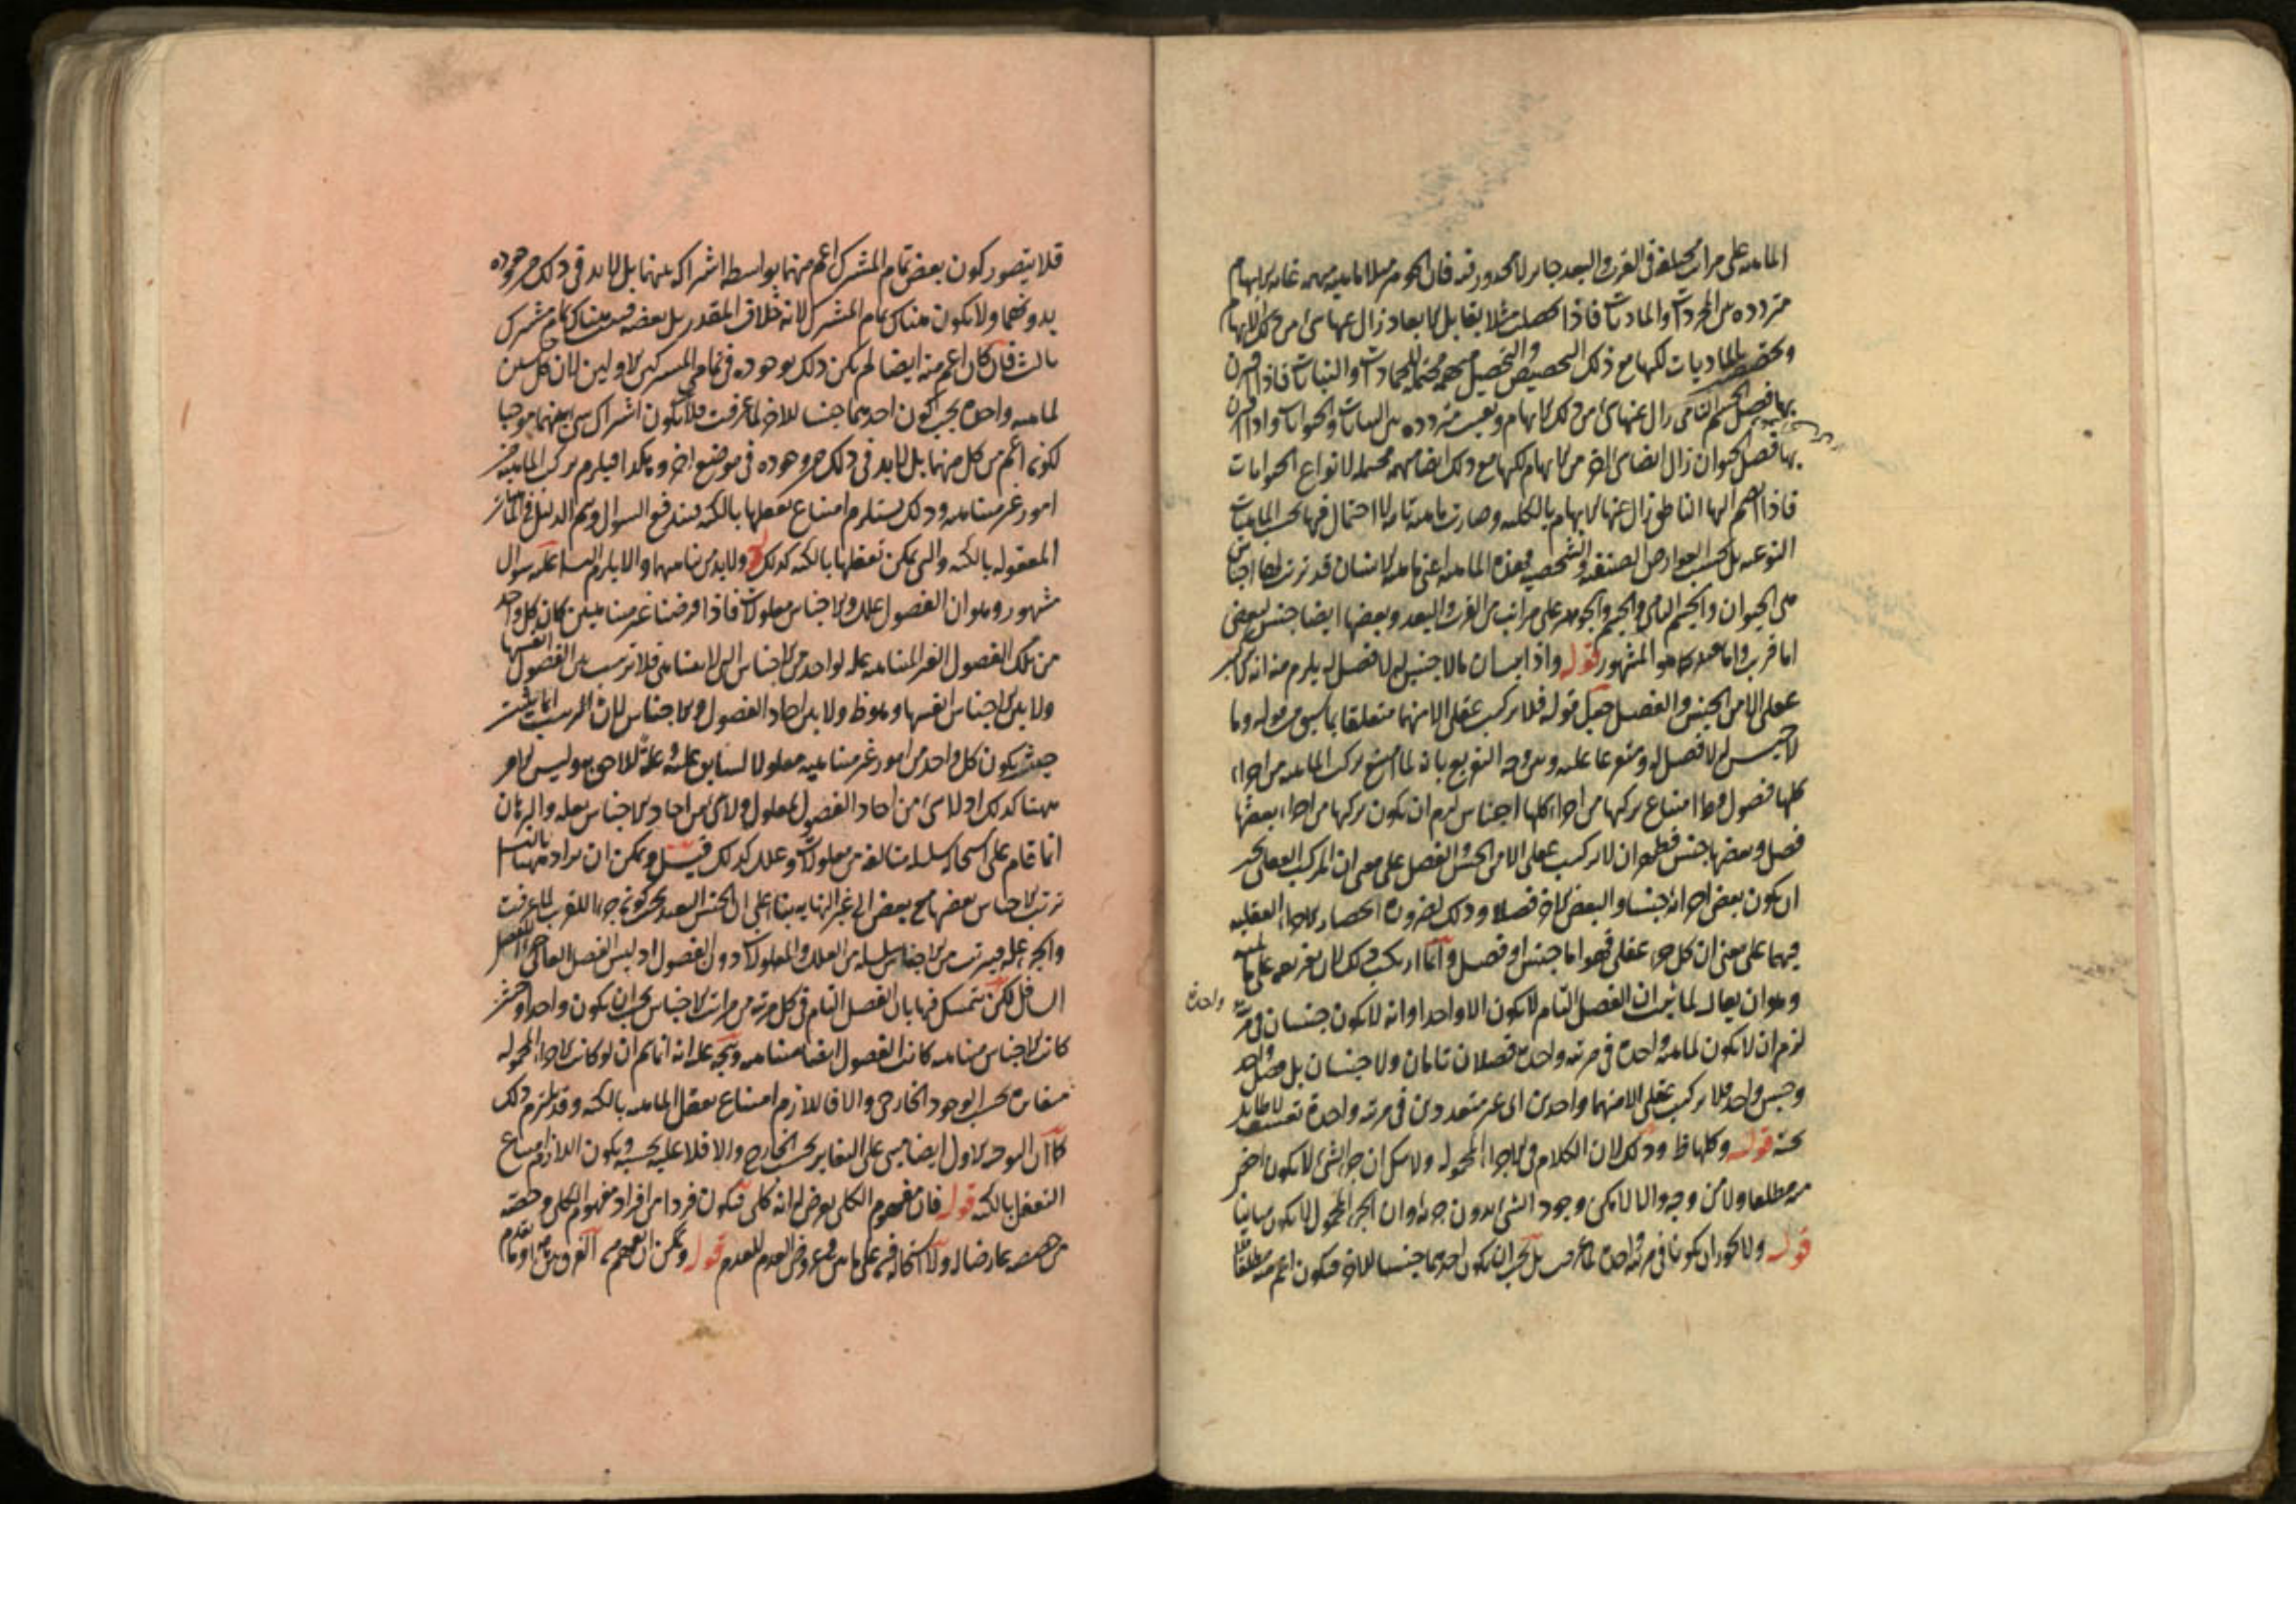 الماهية على مراتب مختلفة فى القرب والبعد جايز لا محذور فيه فان الجوهر مثلا ماهية مبهمة غاية الابهام
مترددة بين المجردات والماديات فاذا حصلت مثلا بقابل الابعاد زال عنها شئ من ذلك الابهام
وتختص بالماديات لكنها مع ذلك التخصيص والتحصيل مبهمة محتملة للجمادات والنباتات فاذا اقترن
بها فصل الجسم النامى زال عنها شئ من ذلك الابهام وبقيت مترددة بين النباتات والحيوانات واذا اقترن
بها فصل الحيوان زال ايضا شئ اخر من الابهام لكنها مع ذلك ايضا مبهمة محتملة لانواع الحيوانات
فاذا انضم اليها الناطق زال عنها الابهام بالكلية وصارت ماهية تامة لا احتمال فيها بحسب الماهيات
النوعية بل بحسب العوارض الصنفية والشخصية فهذه الماهية اعنى ماهية الانسان قد ترتب لها اجناس
هى الحيوان والجسم النامى والجسم والجوهر على مراتب من القرب والبعد وبعضها ايضا جنس لبعض
اما قريب واما بعيد كما هو المشهور قوله واذا تبين ان ما لا جنس له لا فصل له يلزم منه انه لا تركيب
عقلى الا من الجنس والفصل جعل قوله فلا تركيب عقلى الا منهما متعلقا بما سبق من قوله وما
لا جنس له لا فصل له ومتفرعا عليه وبين وجه التفريع بانه لما امتنع تركب الماهية من اجزاء
كلها فصول وما امتناع تركبها من اجزاء كلها اجناس لزم ان يكون تركبها من اجزاء بعضها
فصل وبعضها جنس فظهر ان لا تركيب عقلى الا من الجنس والفصل على معنى ان المركب العقلى يجب
ان يكون بعض اجزائه جنسا والبعض الاخر فصلا وذلك لضرورة انحصار الاجزاء العقلية
فيهما على معنى ان كل جزء عقلى فهو اما جنس او فصل وانما ارتكب ذلك لان تفريعه على ما
وهو ان يقال لما ثبت ان الفصل التام لا يكون الا واحدا وانه لا يكون جنسان فى مرتبة واحدة
لزم ان لا يكون لماهية واحدة فى مرتبة واحدة فصلان تامان ولا جنسان بل فصل واحد
وجنس واحد فلا تركيب عقلى الا منهما واحدين اى غير متعددين فى مرتبة واحدة تعسف لا طايل
تحته قوله وكلها ظ وذلك لان الكلام فى الاجزاء المحمولة ولا شك ان جزء الشئ لا يكون اخص
منه مطلقا ولا من وجه والا لامكن وجود الشئ بدون جزئه وان الجزء المحمول لا يكون مباينا
قوله ولا يجوز ان يكونا فى مرتبة واحدة لما عرفت بل يجب ان يكون احدهما جنسا للاخر فيكون اعم منه مطلقا
فلا يتصور كون بعض تمام المشترك اعم منهما بواسطة اشتراكه بينهما بل لا بد فى ذلك من وجوده
بدونهما ولا يكون هناك تمام المشترك لانه خلاف المقدر بل بعضه فهناك تمام مشترك
ثالث فان كان اعم منه ايضا لم يكن ذلك بوجوده فى تمامى المشتركين الاولين لان كل جنسين
لماهية واحدة يجب كون احدهما جنسا للاخر لما عرفت فلا يكون اشتراك شئ بينهما موجبا
لكونه اعم من كل منهما بل لا بد فى ذلك من وجوده فى موضع اخر وهكذا فيلزم تركب الماهية من
امور غير متناهية وذلك يستلزم امتناع تعقلها بالكنه فيندفع السوال ويتم الدليل فى الماهيات
المعقولة بالكنه والتى يمكن تعقلها بالكنه كذلك ولا بد من تناهيهما والا يلزم التسلسل عليه سوال
مشهور وهو ان الفصول علل والاجناس معلولات فاذا فرضنا غير متناهيين كان كل واحد
من تلك الفصول الغير المتناهية علة لواحد من الاجناس التى لا تتناهى فلا ترتب بين الفصول انفسها
ولا بين الاجناس انفسها وهو ظ ولا بين احاد الفصول والاجناس لان الترتيب انما يثبت
حيث يكون كل واحد من امور غير متناهية معلولا لسابق عليه وعلة للاحق به وليس الامر
ههنا كذلك اذ لا شئ من احاد الفصول بمعلول ولا شئ من احاد الاجناس بعلة والبرهان
انما قام على استحالة سلسلة متالفة من معلولات وعلل كذلك قيل ويمكن ان يراد ههنا بالتسلسل
ترتب الاجناس بعضها مع بعض الى غير النهاية بناء على ان الجنس البعيد يجب كونه جزءا للقريب لما عرفت
والجزء علة فيترتب من الاجناس سلسلة من العلل والمعلولات دون الفصول اذ ليس الفصل العالى جزءا للفصل
السافل لكن يتمسك فيها بان الفصل التام فى كل مرتبة من مراتب الاجناس يجب ان يكون واحدا وحيث
كانت الاجناس متناهية كانت الفصول ايضا متناهية ويتجه عليه انه انما يتم ان لو كانت الاجزاء المحمولة
متغايرة بحسب الوجود الخارجى والا فاللازم امتناع تعقل الماهية بالكنه وقد يلتزم ذلك
كما ان التوجيه الاول ايضا مبنى على التغاير بحسب الخارج والا فلا علية بحسبه ويكون اللازم امتناع
التعقل بالكنه قوله فان مفهوم الكلى يعرض له انه كلى فيكون فردا من افراد مفهوم الكلى وحصة
من حصصه عارضا له ولا استحالة فيه على ما بين فى عروض العدم للعدم قوله ويمكن ان يفهم الفرق بين ما تقدم